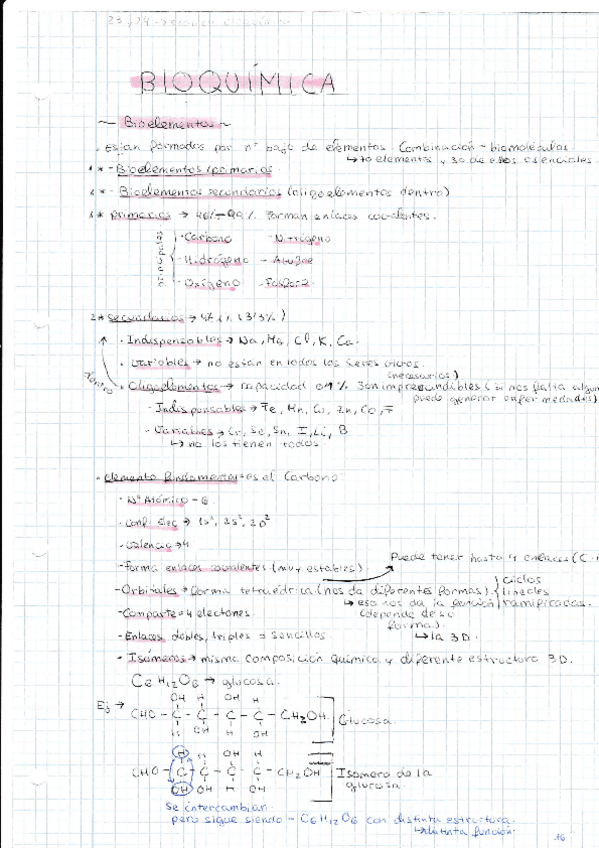 BIOQUÍMICA
~ Bioelementos ~
· Están formados por nº bajo de elementos. Combinación - biomoléculas.
↳ 70 elementos y 30 de ellos esenciales.
1 * - Bioelementos primarios.
2 * - Bioelementos secundarios (oligoelementos dentro)
1 * primarios → 99% Forman enlaces covalentes.
principales
- Carbono - Nitrógeno
- Hidrógeno - Azufre
- Oxígeno - Fosforo
2 * secundarios →
· Indispensables → Na, Mg, Cl, K, Ca.
· Variables → no están en todos los seres vivos.
(necesarios)
dentro
· Oligoelementos → capacidad 0'1% Son imprescindibles (si nos falta algun
puede generar enfermedades)
- Indispensables → Fe, Mn, Cu, Zn, Co, F
- Variables → Cr, Se, Sn, I, Li, B
↳ no los tienen todos.
· elemento fundamental es el Carbono
· Nº Atómico - 6
· Conf. elec → 1s², 2s², 2p²
· Valencia → 4
Puede tener hasta 4 enlaces
- Forma enlaces covalentes (muy estables)
- Orbitales → forma tetraédrica (nos da diferentes formas) ciclos
lineales
↳ eso nos da la función ramificadas.
(depende de su
forma).
↳ la 3D.
- Comparte 4 electones.
- Enlaces dobles, triples o sencillos.
- Isómeros → misma composición química y diferente estructura 3D.
C6 H12 O6 → glucosa.
Ej →
OH H OH H
CHO - C - C - C - C - CH2OH Glucosa
H OH H OH
H H OH H
CHO - C - C - C - C - CH2OH Isomero de la
glucosa.
OH OH H OH
Se intercambian
pero sigue siendo - C6H12O6 con distinta estructura.
↳ distinta función.
16